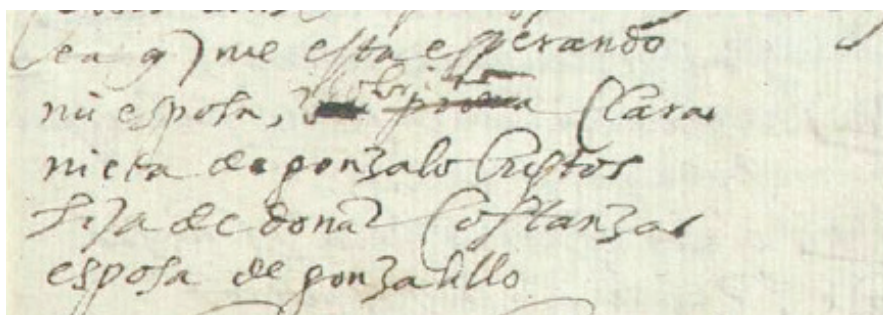 me esta esperando
mi esposa, Clara
nieta de gonzalo Bustos
hija de dona Costanza
esposa de gonzalillo